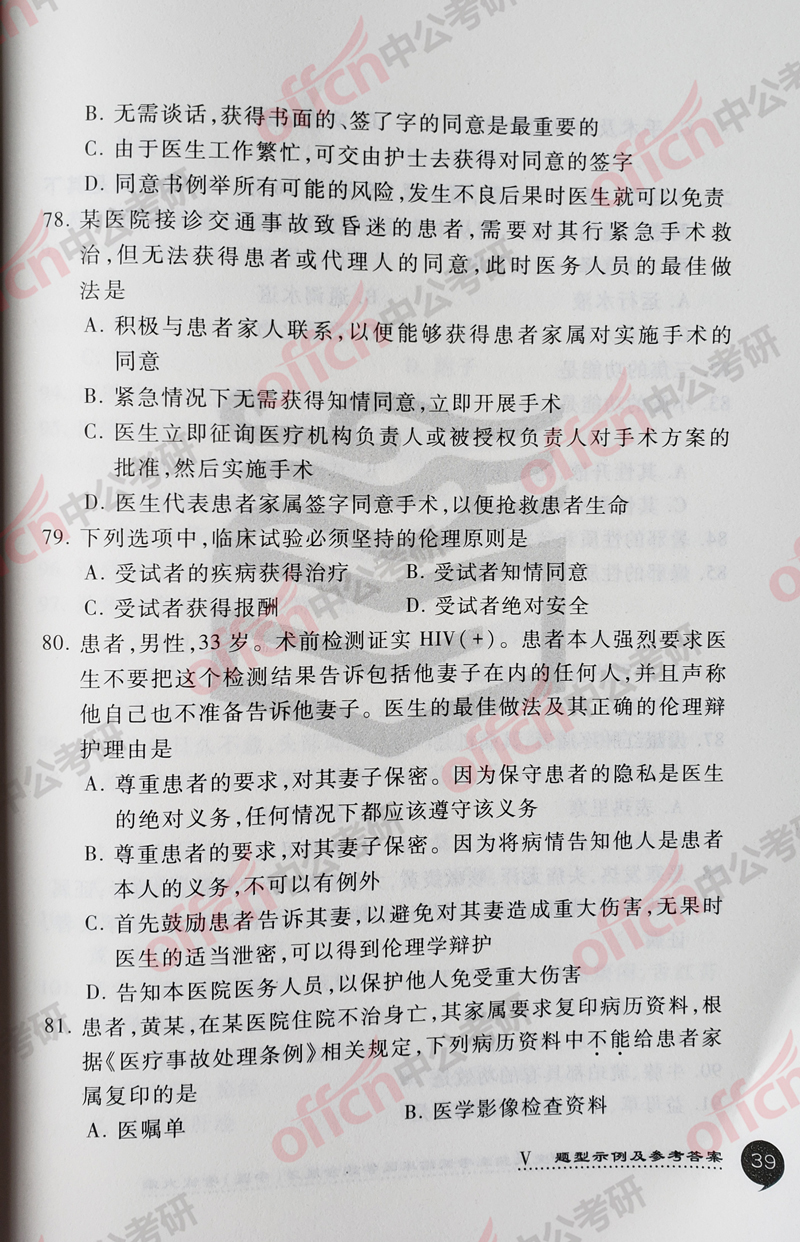 B. 无需谈话,获得书面的、签了字的同意是最重要的
C. 由于医生工作繁忙,可交由护士去获得对同意的签字
D. 同意书例举所有可能的风险,发生不良后果时医生就可以免责
78. 某医院接诊交通事故致昏迷的患者,需要对其行紧急手术救
治,但无法获得患者或代理人的同意,此时医务人员的最佳做
法是
A. 积极与患者家人联系,以便能够获得患者家属对实施手术的
同意
B. 紧急情况下无需获得知情同意,立即开展手术
C. 医生立即征询医疗机构负责人或被授权负责人对手术方案的
批准,然后实施手术
D. 医生代表患者家属签字同意手术,以便抢救患者生命
79. 下列选项中,临床试验必须坚持的伦理原则是
A. 受试者的疾病获得治疗 B. 受试者知情同意
C. 受试者获得报酬 D. 受试者绝对安全
80. 患者,男性,33岁。术前检测证实 HIV(+)。患者本人强烈要求医
生不要把这个检测结果告诉包括他妻子在内的任何人,并且声称
他自己也不准备告诉他妻子。医生的最佳做法及其正确的伦理辩
护理由是
A. 尊重患者的要求,对其妻子保密。因为保守患者的隐私是医生
的绝对义务,任何情况下都应该遵守该义务
B. 尊重患者的要求,对其妻子保密。因为将病情告知他人是患者
本人的义务,不可以有例外
C. 首先鼓励患者告诉其妻,以避免对其妻造成重大伤害,无果时
医生的适当泄密,可以得到伦理学辩护
D. 告知本医院医务人员,以保护他人免受重大伤害
81. 患者,黄某,在某医院住院不治身亡,其家属要求复印病历资料,根
据《医疗事故处理条例》相关规定,下列病历资料中不能给患者家
属复印的是
A. 医嘱单 B. 医学影像检查资料
V 题型示例及参考答案 39
offcn中公考研